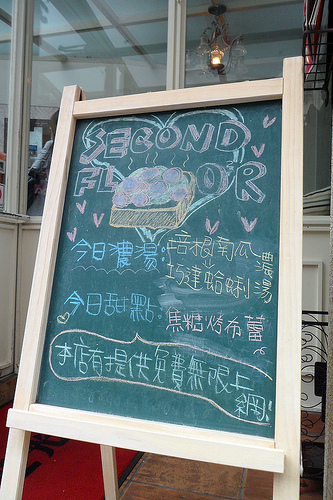 SECOND
FLOOR
今日濃湯：培根南瓜濃湯
巧達蛤蜊
今日甜點。焦糖烤布蕾
本店有提供免費無限上網!